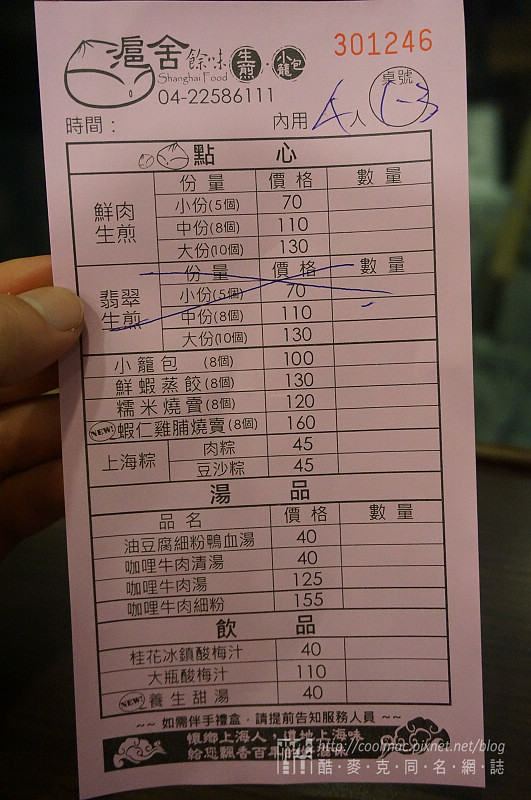 滬舍 餘味 生煎 · 小籠包
301246
Shanghai Food
04-22586111
桌號
1-3
時間：
內用 4 人
點 心
鮮肉生煎
份量 價格 數量
小份(5個) 70
中份(8個) 110
大份(10個) 130
翡翠生煎
份量 價格 數量
小份(5個) 70
中份(8個) 110
大份(10個) 130
小籠包 (8個) 100
鮮蝦蒸餃(8個) 130
糯米燒賣(8個) 120
NEW! 蝦仁雞脯燒賣(8個) 160
上海粽
肉粽 45
豆沙粽 45
湯 品
品名 價格 數量
油豆腐細粉鴨血湯 40
咖哩牛肉清湯 40
咖哩牛肉湯 125
咖哩牛肉細粉 155
飲 品
桂花冰鎮酸梅汁 40
大瓶酸梅汁 110
NEW! 養生甜湯 40
~~ 如需伴手禮盒，請提前告知服務人員 ~~
懷鄉上海人，道地上海味
給您飄香百年的
http://coolmac.pixnet.net/blog
酷·麥·克·同·名·網·誌